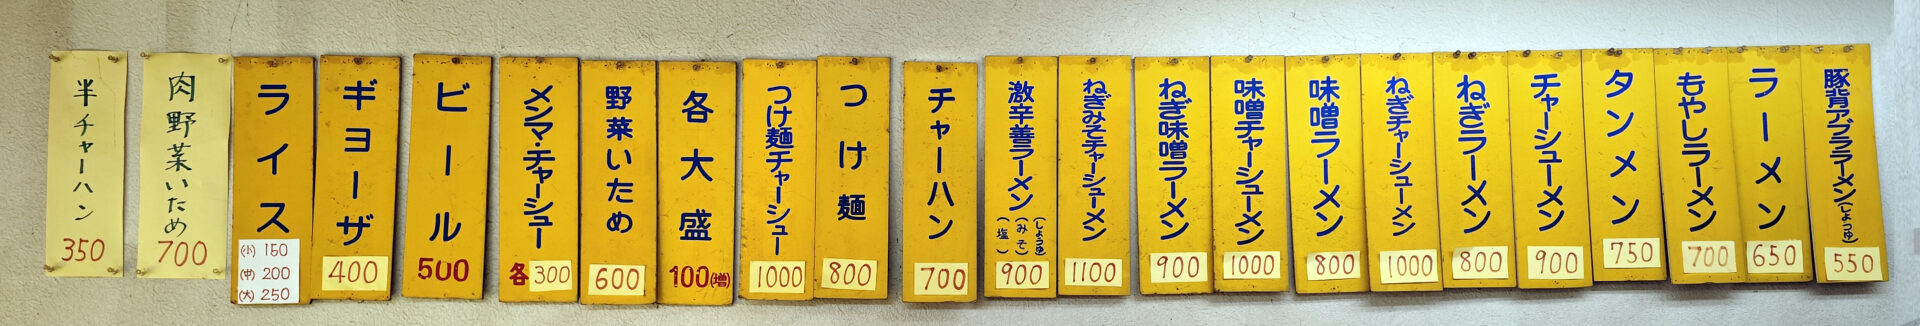 豚背アブララーメン(しょうゆ)
550
ラーメン
650
もやしラーメン
700
タンメン
750
チャーシューメン
900
ねぎラーメン
800
ねぎチャーシューメン
1000
味噌ラーメン
800
味噌チャーシューメン
1000
ねぎ味噌ラーメン
900
ねぎみそチャーシューメン
1100
激辛善ラーメン
(しょうゆ)
(みそ)
(塩)
900
チャーハン
700
つけ麺
800
つけ麺チャーシュー
1000
各大盛
100(増)
野菜いため
600
メンマ・チャーシュー
各300
ビール
500
ギョーザ
400
ライス
(小) 150
(中) 200
(大) 250
肉野菜いため
700
半チャーハン
350